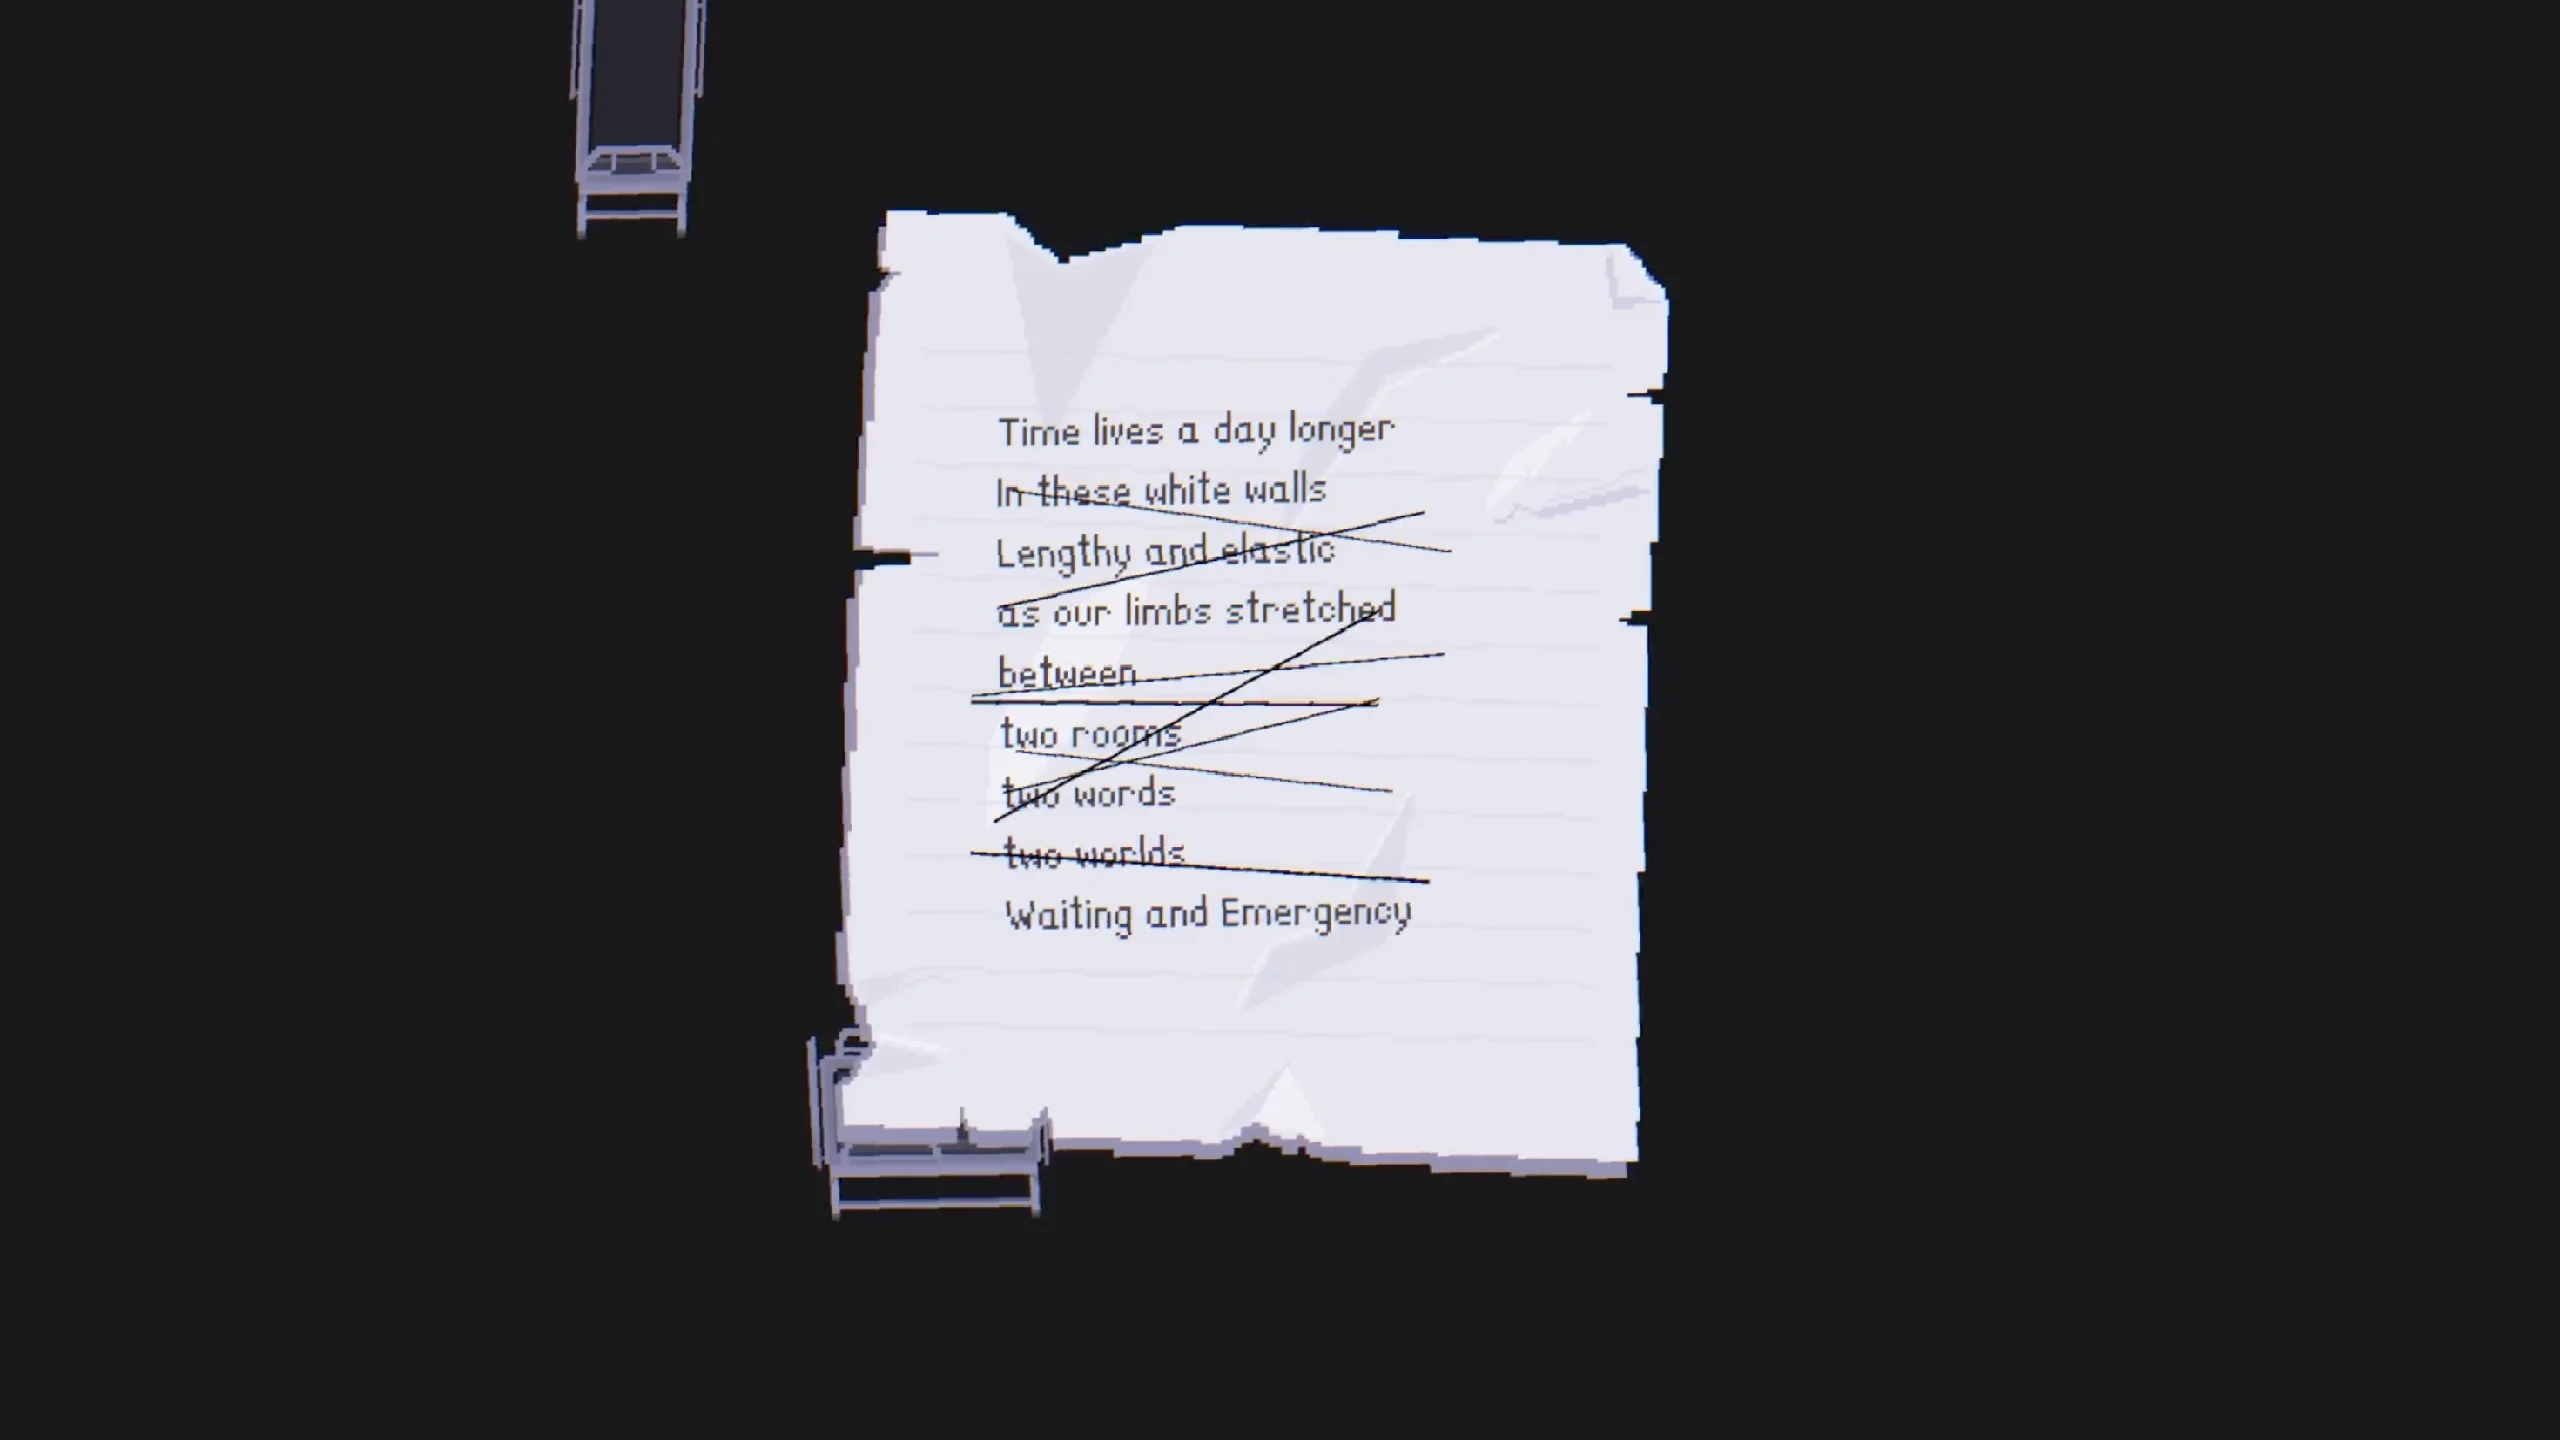 Time lives a day longer
In these white walls
Lengthy and elastic
as our limbs stretched
between
two rooms
two words
two worlds
Waiting and Emergency